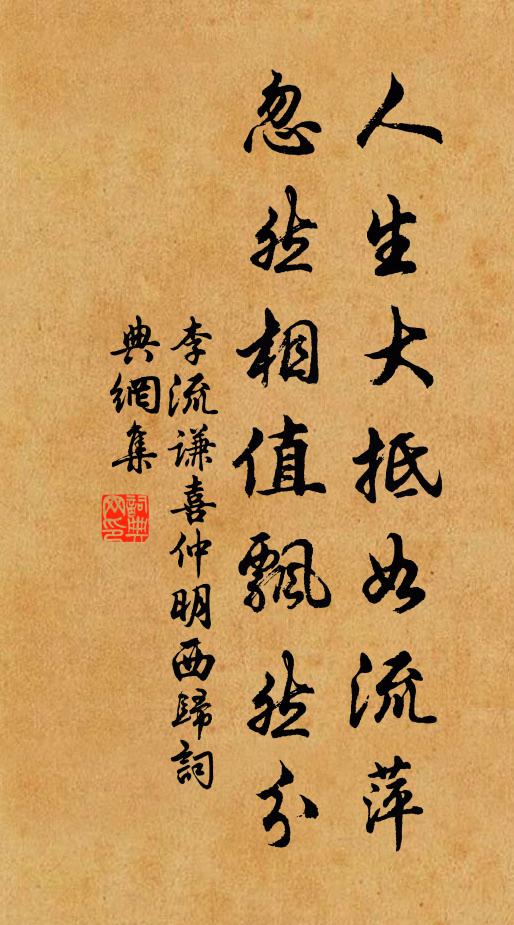 人生大抵如流萍
忽然相值飄然分
李流謙喜仲明西歸詞
典網集
詞典網印